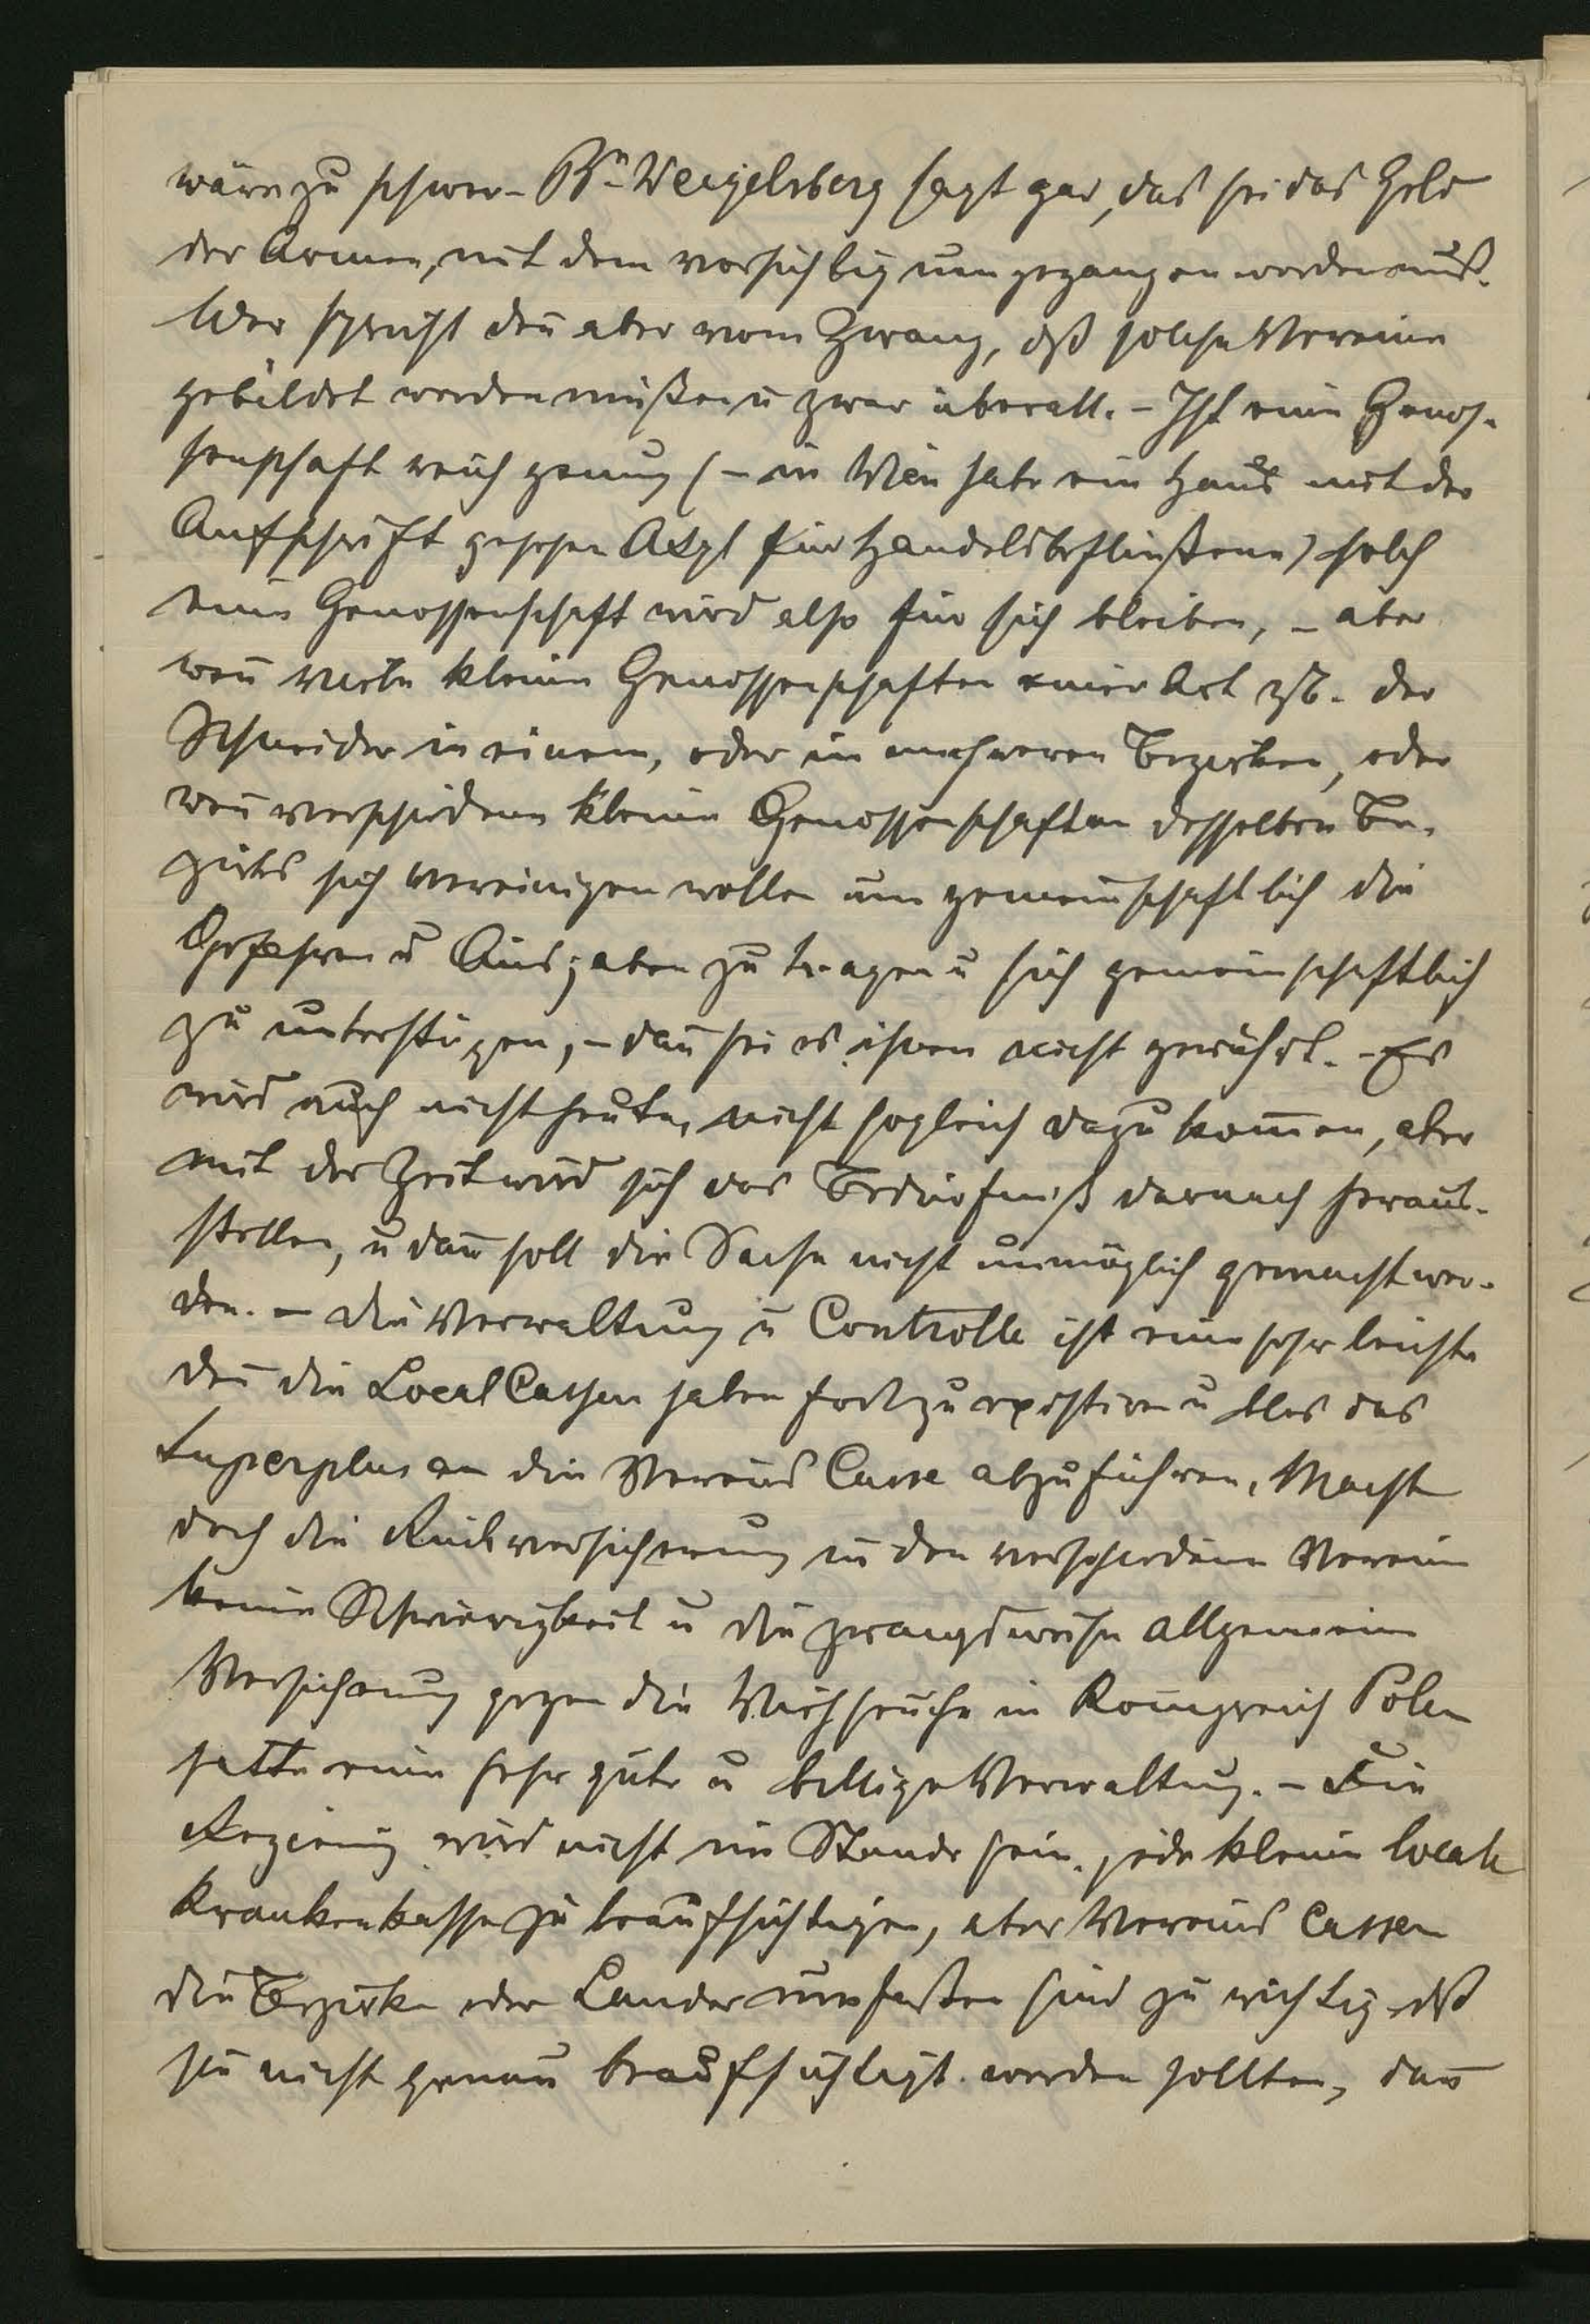 wäre zu schwer – Bn Weigelsberg sagt gar, das sei das Geld
der Armen, mit dem vorsichtig umgegangen werden muß.
Wer spricht den̄ aber vom Zwang, dß solche Vereine
gebildet werden müßen u zwar überall. – Ist eine Genos-
senschaft reich genug (– in Wien habe ein Haus mit der
Aufschrift gesehen Asyl für Handelsbeflißene) solch
eine Genossenschaft wird also für sich bleiben, – aber
wen̄ viele kleine Genossenschaften einer Art zB. der
Schneider in einem, oder in mehreren Bezirken, oder
wen̄ verschiedene kleine Genossenschaften desselben Be-
zirks sich vereinigen wollen um gemeinschaftlich die
Gefahren u Ausgaben zu tragen u sich gemeinschaftlich
zu unterstüzen, – dan̄ sei es ihnen nicht gewährt. – Es
wird auch nicht heute, nicht sogleich dazu kom̄en, aber
mit der Zeit wird sich das Bedürfniß darnach heraus-
stellen, u dan̄ soll die Sache nicht unmöglich gemacht wer-
den. – Die Verwaltung u Controlle ist eine sehr leichte
den̄ die Local Cassen haben fortzuexistiren u blos das
Superplus an die Vereins Casse abzuführen, Macht
doch die Rückversicherung in den verschiedenen Verein
keine Schwierigkeit u die zwangsweise allgemeine
Versicherung gegen die Viehseuche in Königreich Polen
hatte eine sehr gute u billige Verwaltung. – Die
Regierung wird nicht im Stande sein, jede kleine locale
Krankenkasse zu beaufsichtigen, aber Vereins Cassen
die Bezirke oder Länder umfaßen sind zu wichtig dß
sie nicht genau beaufsichtigt werden sollten, dan̄